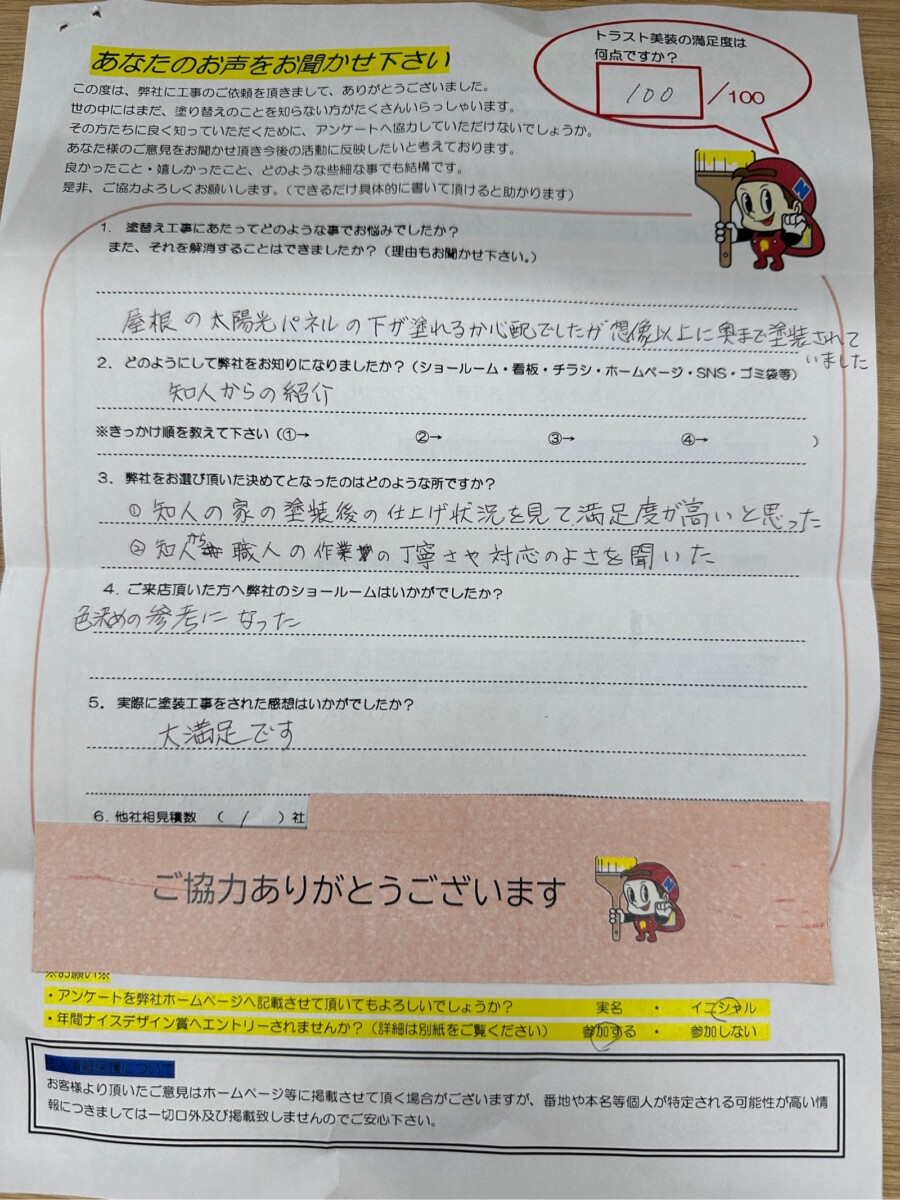 あなたのお声をお聞かせ下さい
トラスト美装の満足度は
何点ですか?
100 /100
この度は、弊社に工事のご依頼を頂きまして、ありがとうございました。
世の中にはまだ、塗り替えのことを知らない方がたくさんいらっしゃいます。
その方たちに良く知っていただくために、アンケートへ協力していただけないでしょうか。
あなた様のご意見をお聞かせ頂き今後の活動に反映したいと考えております。
良かったこと・嬉しかったこと、どのような些細な事でも結構です。
是非、ご協力よろしくお願いします。(できるだけ具体的に書いて頂けると助かります)
1. 塗替え工事にあたってどのような事でお悩みでしたか?
また、それを解消することはできましたか?(理由もお聞かせ下さい。)
屋根の太陽光パネルの下が塗れるか心配でしたが想像以上に奥まで塗装されて
いました
2. どのようにして弊社をお知りになりましたか?(ショールーム・看板・チラシ・ホームページ・SNS・ゴミ袋等)
知人からの紹介
※きっかけ順を教えて下さい(①→ ②→ ③→ ④→ )
3. 弊社をお選び頂いた決めてとなったのはどのような所ですか?
① 知人の家の塗装後の仕上げ状況を見て満足度が高いと思った
② 知人から職人の作業の丁寧さや対応のよさを聞いた
4. ご来店頂いた方へ弊社のショールームはいかがでしたか?
色決めの参考になった
5. 実際に塗装工事をされた感想はいかがでしたか?
大満足です
6. 他社相見積数 ( 1 )社
ご協力ありがとうございます
※お願い※
・アンケートを弊社ホームページへ記載させて頂いてもよろしいでしょうか? 実名 ・ イニシャル
・年間ナイスデザイン賞へエントリーされませんか?(詳細は別紙をご覧ください) 参加する ・ 参加しない
個人情報保護について
お客様より頂いたご意見はホームページ等に掲載させて頂く場合がございますが、番地や本名等個人が特定される可能性が高い情
報につきましては一切口外及び掲載致しませんのでご安心下さい。